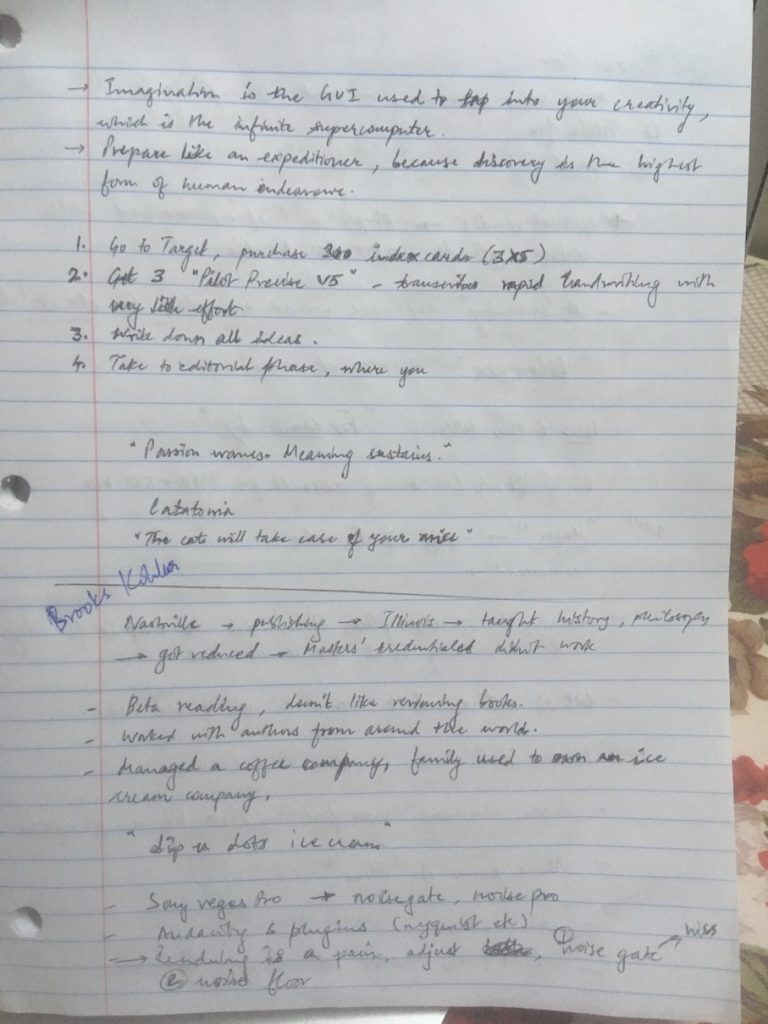 → Imagination is the GUI used to tap into your creativity,
which is the infinite supercomputer.
→ Prepare like an expeditioner, because discovery is the highest
form of human endeavour.
1. Go to Target, purchase 300 index cards (3x5)
2. Get 3 "Pilot Precise V5" - rapid handwriting with
very little effort
3. Write down all ideas.
4. Take to editorial phase, where you
"Passion wanes. Meaning sustains."
Catatonia
"The cats will take care of your mice"
Brooks Kohler
Nashville → publishing → Illinois → taught history, philosophy
→ got reduced → Masters' didn't work
- Beta reading, doesn't like reviewing books.
- Worked with authors from around the world.
- Managed a coffee company, family used to own an ice
cream company.
"dip n dots ice cream"
- Sony vegas Pro → noise gate, noise pro
- Audacity & plugins (nyquist etc)
→ is a pain, adjust , ① noise gate → hiss
② noise floor